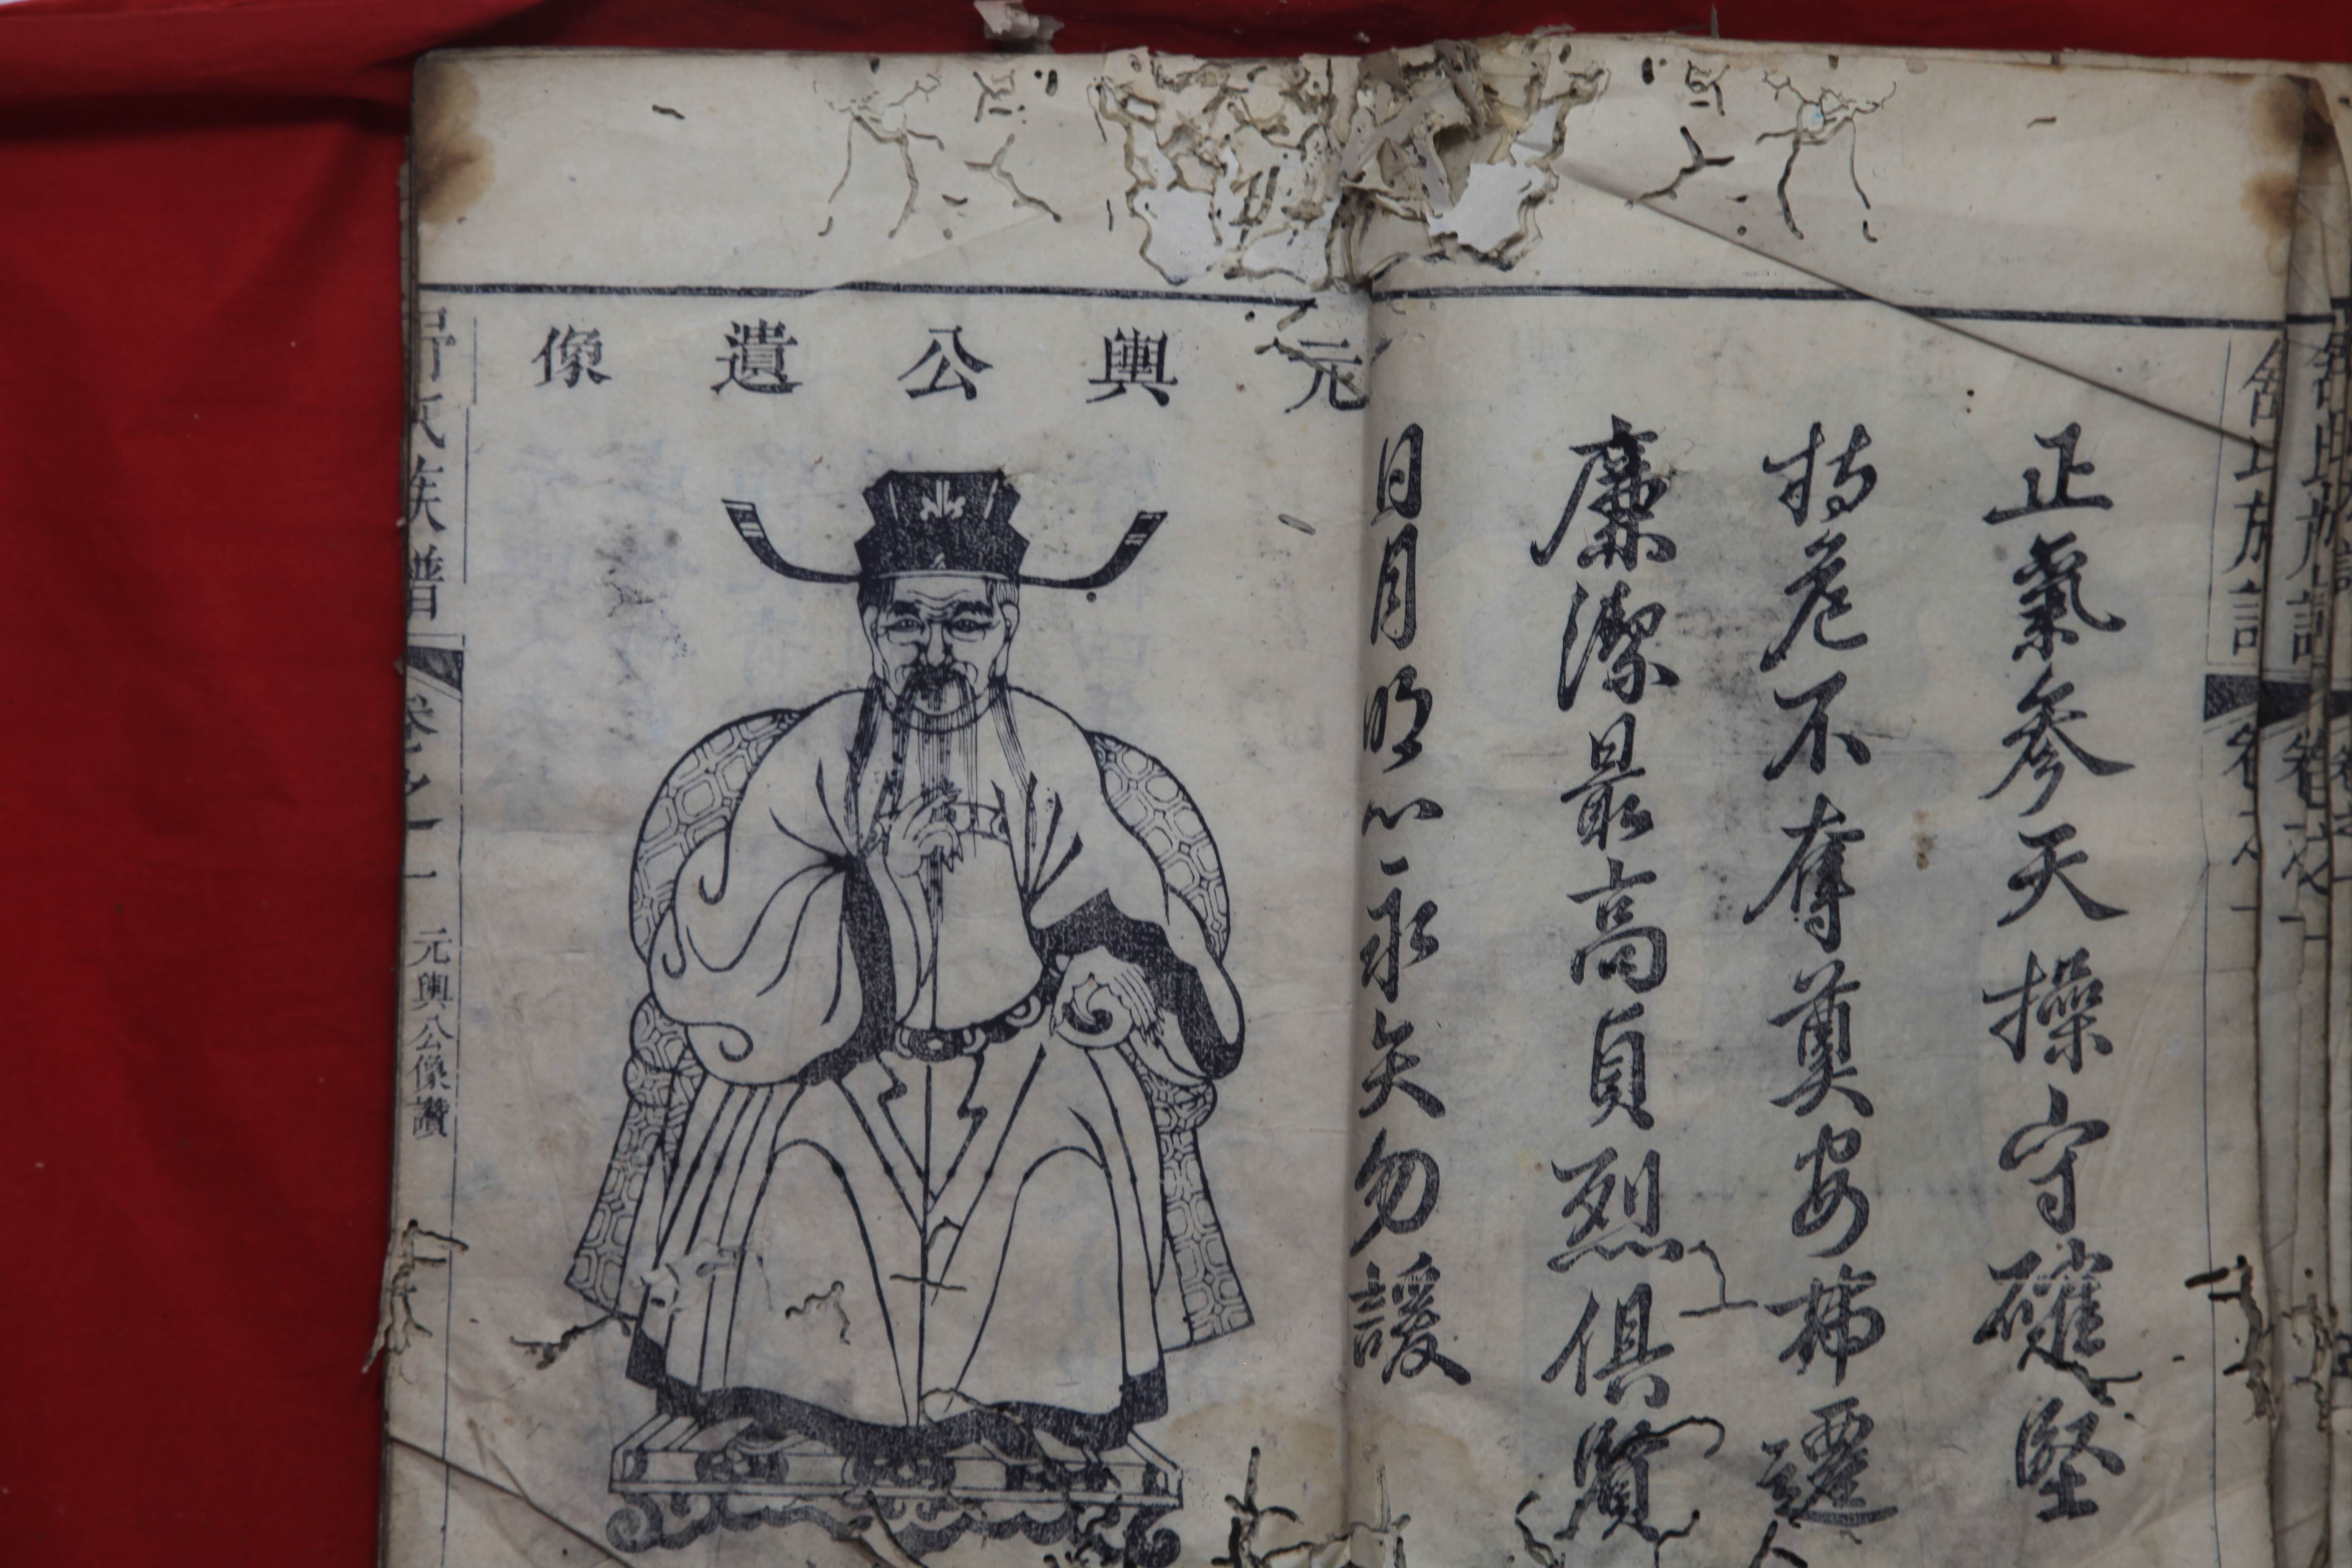 舒氏族譜 卷之一
正氣參天操守確堅
持危不奪奠安遷
廉潔最高貞烈俱賢
日月明心永矢勿諼
元輿公遺像
舒氏族譜 卷之一 元輿公像讚